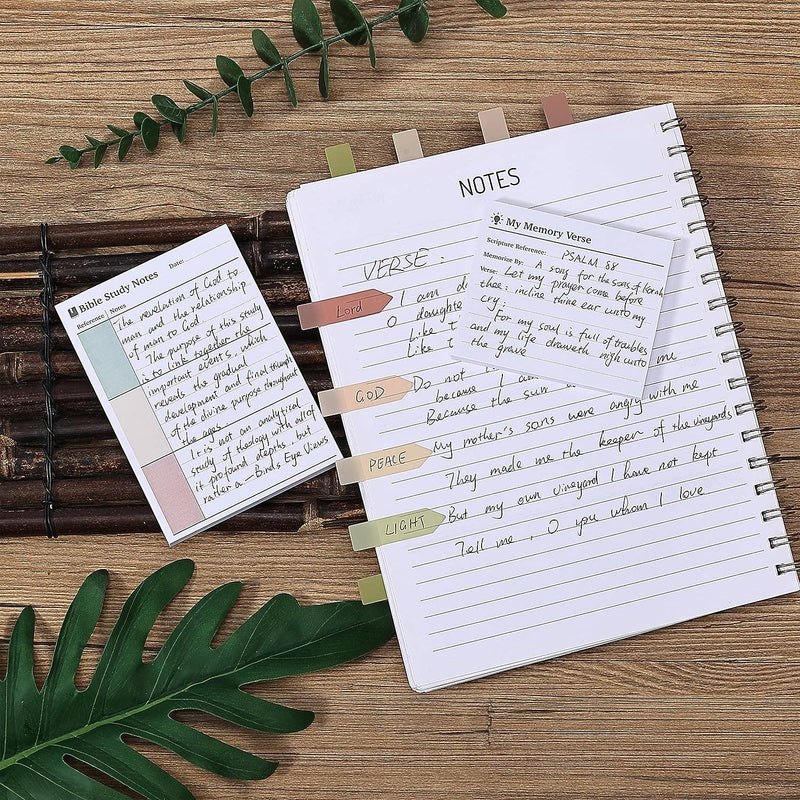 Bible Study Notes
Date:
Reference Notes
The revelation of God to
man and the relationship
of man to God.
The purpose of this study
is to link together the
important events, which
reveals the gradual
development and final triumph
of the divine purpose throughout
the ages.
It is not an analytical
study of theology with all of
it profound depths, but
rather a - Birds Eye Views
NOTES
VERSE.
Lord
I am d
O daughte
Like t
Like t
GOD
Do not me
because I am
Because the sun
My mother's sons were angry with me
PEACE
They made me the keeper of the vineyards
LIGHT
But my own vineyard I have not kept
Tell me, O you whom I love
My Memory Verse
Scripture Reference: PSALM 88
Memorize By: A song for the sons of Korah
Verse: Let my prayer come before
thee: incline thine ear unto my
cry;
For my soul is full of troubles
and my life draweth nigh unto
the grave